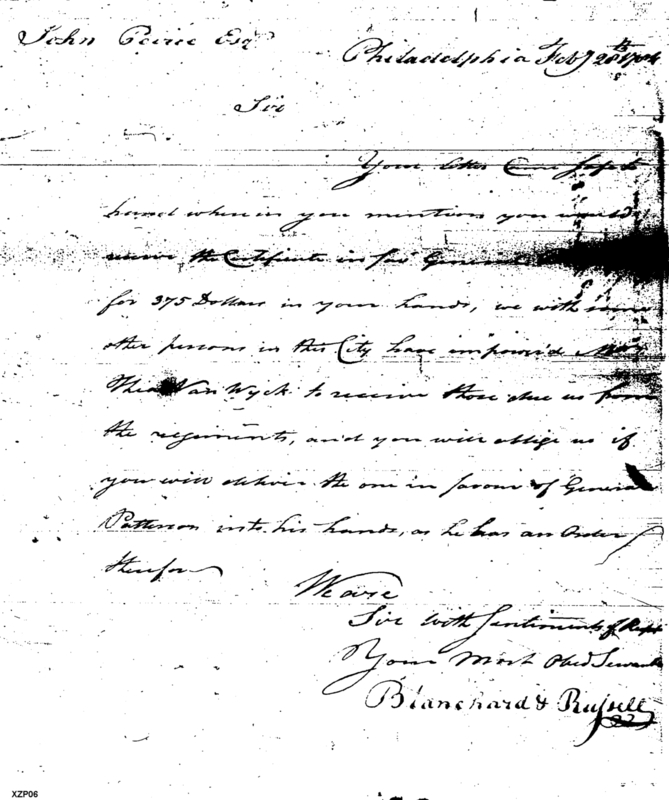 John Peirce Esqr
Philadelphia Feby 28th 1784
Sir
Your letter Came safe to
hand wherein you mention you would
receive the Certificate in favr General
for 375 Dollars in your hands, we with some
other persons in this City have impower'd
Theo Van Wyck to receive those due us from
the regiments, and you will oblige us if
you will deliver the one in favour of General
Patterson into his hands, as he has an Order
therefor
We are
Sir with Sentiments of Respt
Your Most Obed Servants
Blanchard & Russell
XZP06